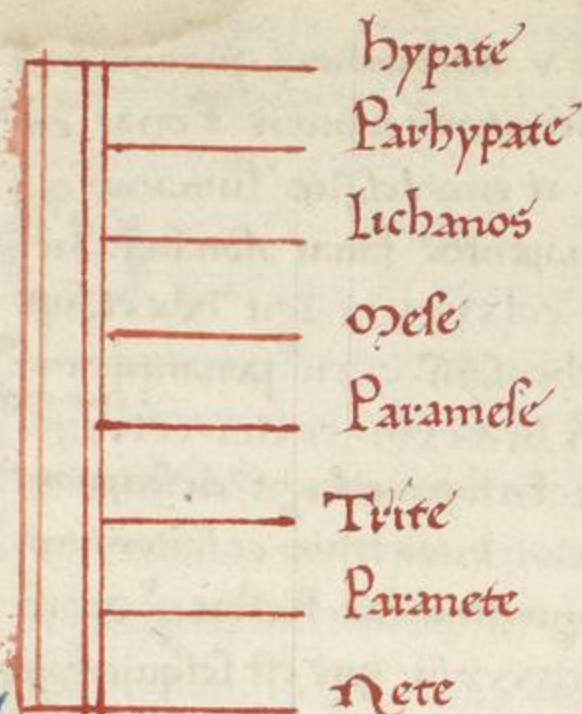 hypate
Parhypate
Lichanos
Mese
Paramese
Trite
Paranete
Nete